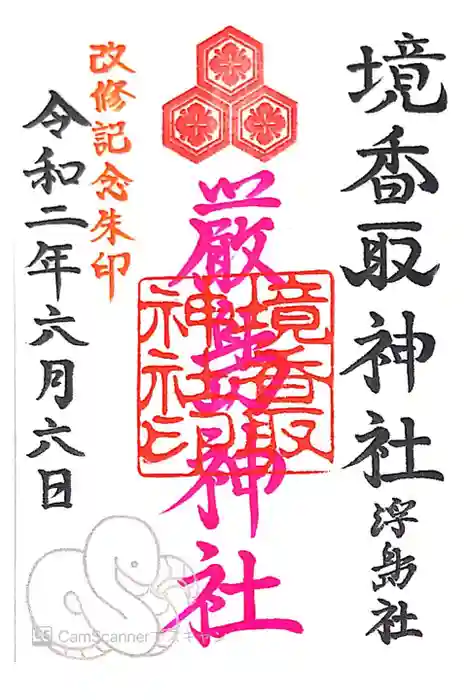 境香取神社 浮島社
厳島神社
境香取神社印
改修記念朱印
令和二年六月六日
CS CamScannerでスキャン